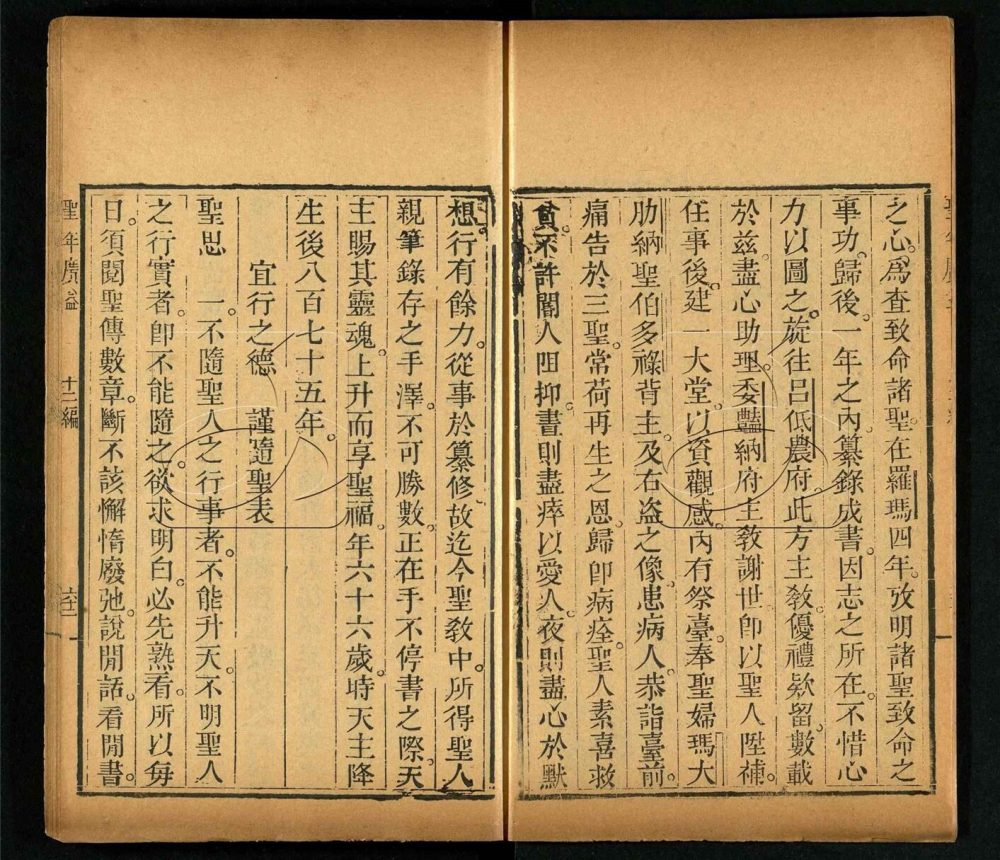 之心。為查致命諸聖。在羅瑪四年。攷明諸聖致命之
事功。歸後。一年之內。纂錄成書。因志之所在。不惜心
力以圖之。旋往呂低農府。此方主教優禮欵留。數載
於兹。盡心助理。委豔納府主教謝世。卽以聖人陞補。
任事後。建一大堂。以資觀感。內有祭臺。奉聖婦瑪大
肋納。聖伯多祿背主。及右盗之像。患病人。恭詣臺前。
痛告於三聖。常荷再生之恩。歸卽病痊。聖人素喜救
貧。不許閽人阻抑。晝則盡瘁以愛人。夜則盡心於默
想。行有餘力。從事於纂修。故迄今聖教中。所得聖人
親筆錄存之手澤。不可勝數。正在手不停書之際。天
主賜其靈魂。上升而享聖福。年六十六歲。時天主降
生後八百七十五年。
宜行之德 謹隨聖表
聖思 一不隨聖人之行事者。不能升天。不明聖人
之行實者。卽不能隨之。欲求明白。必先熟看。所以每
日。須閱聖傳數章。斷不該懈惰廢弛。說閒話。看閒書。
聖年廣益
十二編